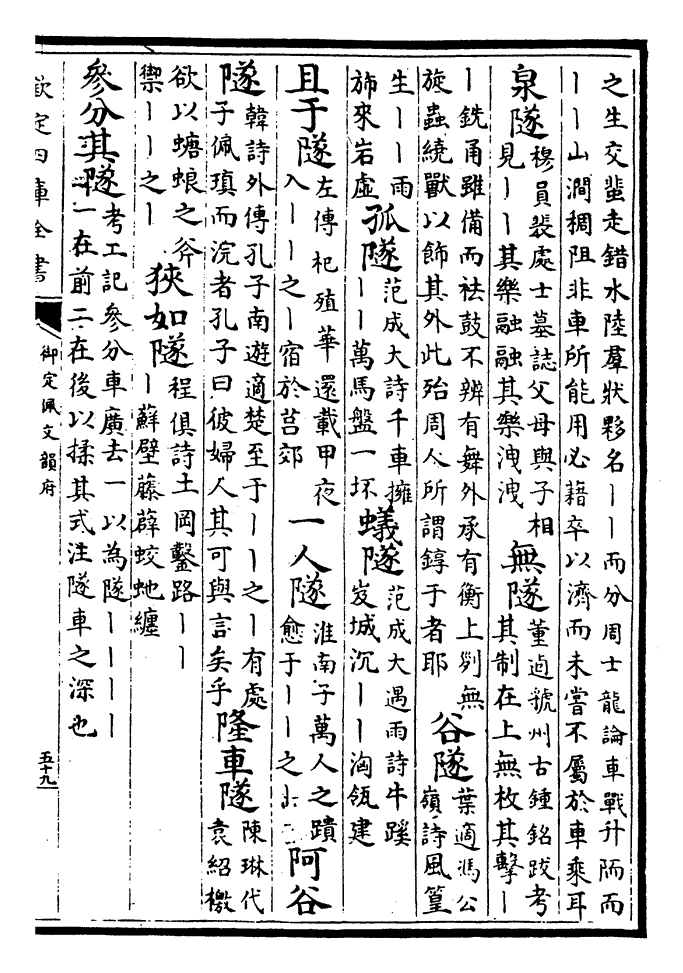 之生交蜚走錯水陸羣狀夥名——而分周士龍論車戰升陑而
——山澗稠阻非車所能用必藉卒以濟而未嘗不屬於車乘耳
泉隧穆員裴處士墓誌父母與子相見——其樂融融其樂洩洩無隧董逌虢州古鍾銘跋考其制在上無枚其擊—
—銑甬雖備而袪鼓不辨有舞外承有衡上剡無旋蟲繞獸以飾其外此殆周人所謂錞于者耶谷隧葉適馮公嶺詩風篁
生——雨斾來岩虛孤隧范成大詩千車擁——萬馬盤一坏蟻隧范成大遇雨詩牛蹊岌城沉——洶瓴建
且于隧左傳杞殖華還載甲夜入——之—宿於莒郊一人隧淮南子萬人之蹟愈于——之阿谷
隧韓詩外傳孔子南遊適楚至于——之—有處子佩瑱而浣者孔子曰彼婦人其可與言矣乎隆車隧陳琳代袁紹檄
欲以螗蜋之斧禦——之—狹如隧程俱詩土岡鑿路———蘇壁藤薜蛟虵纏
參分其隧考工記參分車廣去一以為隧————一在前二在後以揉其式注隧車之深也
欽定四庫全書
御定佩文韻府
五十九